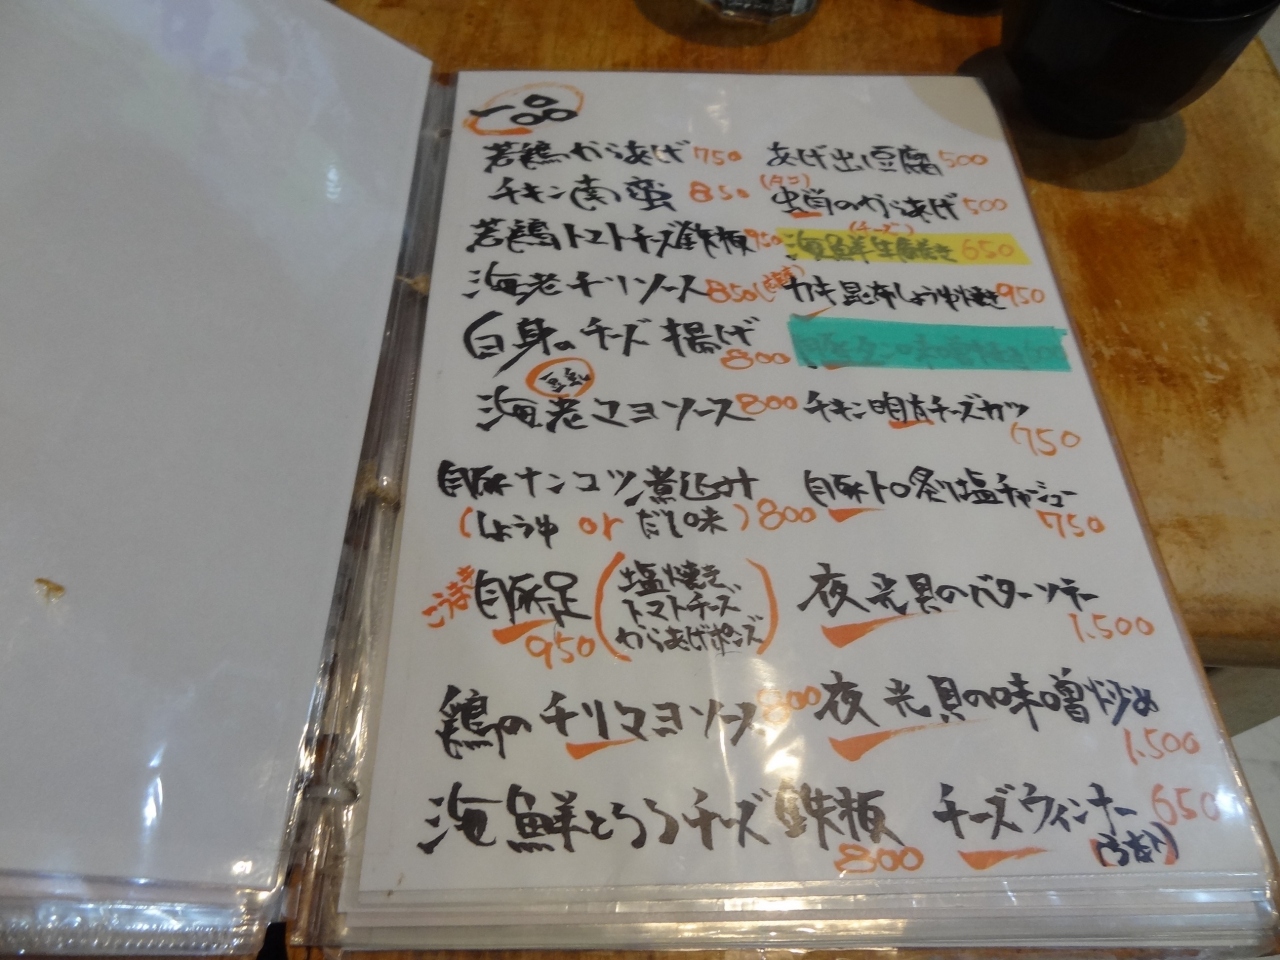 一品
若鶏からあげ 750
チキン南蛮 850
若鶏トマトチーズ鉄板 950
海老チリソース 850
白身のチーズ揚げ 800
豆乳
海老マヨソース 800
豚ナンコツ煮込み
(しょうゆ or だし味) 800
豚足 950
(塩焼き、
トマトチーズ
からあげポンズ)
鶏のチリマヨソース 800
海鮮とろろチーズ鉄板 800
あげ出し豆腐 500
(タコ)
蛸のからあげ 500
(チーズ)
海鮮 焼き 650
カキ昆布しょうゆ焼き 950
チキン明太チーズカツ 750
豚トロ炙り塩チャーシュー 750
夜光貝のバターソテー 1.500
夜光貝の味噌炒め 1.500
チーズウィンナー 650